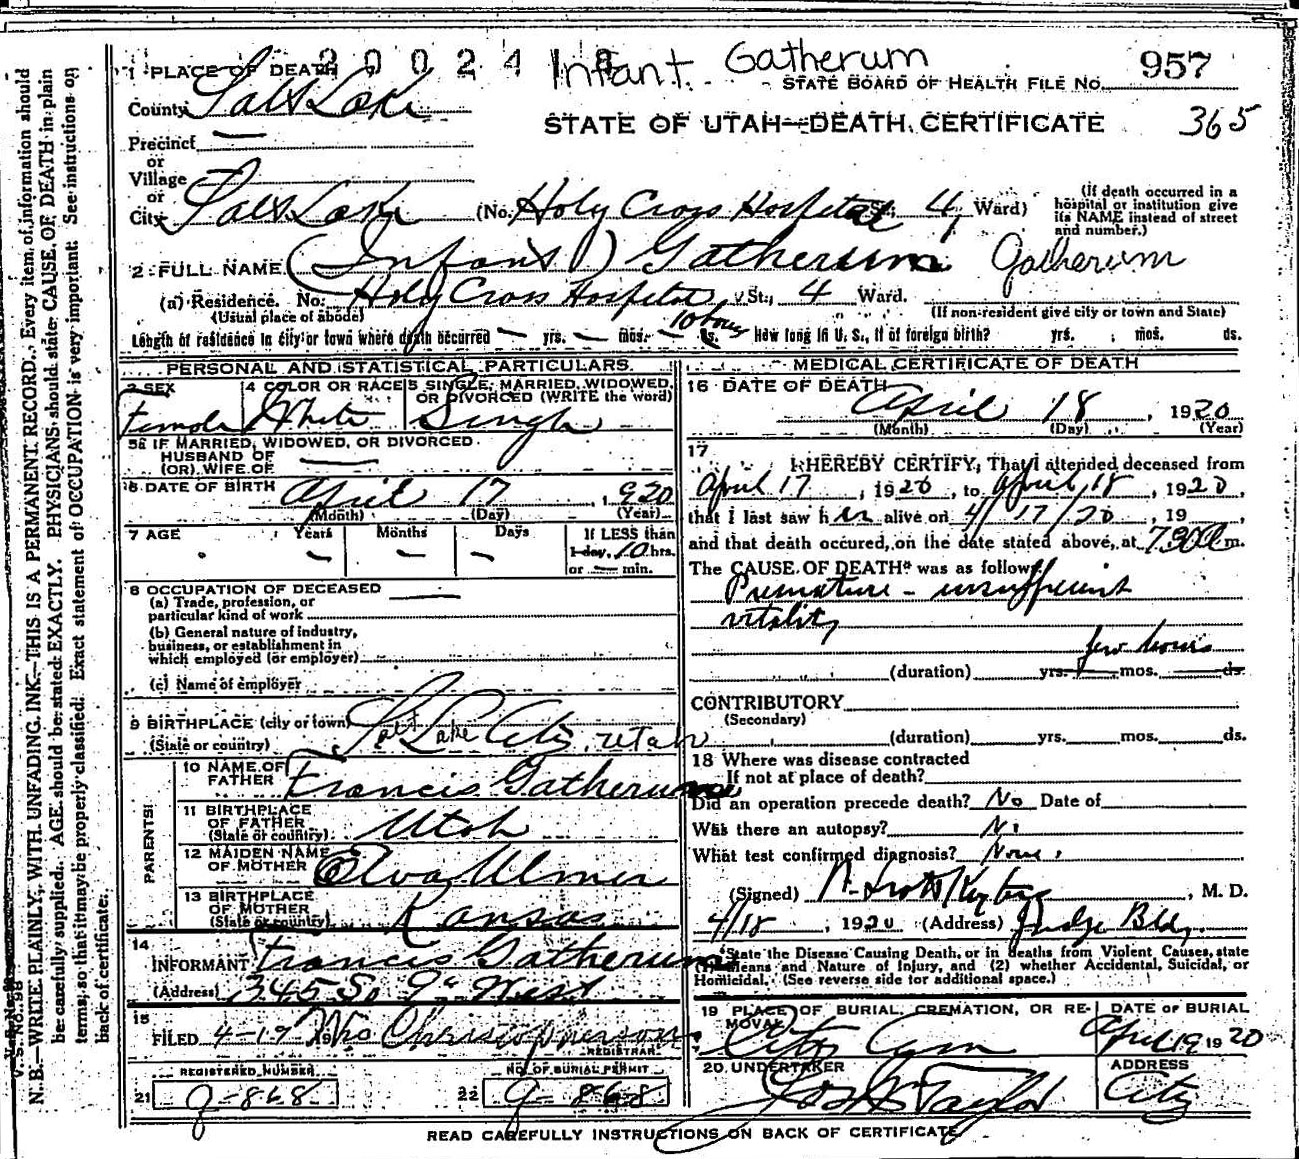 2 0 0 2 4 1 8
Infant Gatherum
957
STATE BOARD OF HEALTH FILE NO.
STATE OF UTAH—DEATH CERTIFICATE
365
1 PLACE OF DEATH
County Salt Lake
Precinct —
or
Village
or
City Salt Lake (No. Holy Cross Hospital St.; 4, Ward)
(If death occurred in a
hospital or institution give
its NAME instead of street
and number.)
2 FULL NAME (Infant) Gatherum Gatherum
(a) Residence. No. Holy Cross Hospital St., 4 Ward.
(Usual place of abode) (If non-resident give city or town and State)
Length of residence in city or town where death occurred — yrs. — mos. 10 hours ds. How long in U. S., if of foreign birth? yrs. mos. ds.
PERSONAL AND STATISTICAL PARTICULARS.
3 SEX
Female
4 COLOR OR RACE
White
5 SINGLE, MARRIED, WIDOWED,
OR DIVORCED (WRITE the word)
Single
5a IF MARRIED, WIDOWED, OR DIVORCED
HUSBAND OF
(OR) WIFE OF —
6 DATE OF BIRTH April 17, 1920
(Month) (Day) (Year)
7 AGE Years Months Days If LESS than
— — — 1 day, 10 hrs.
or — min.
8 OCCUPATION OF DECEASED —
(a) Trade, profession, or
particular kind of work
(b) General nature of industry,
business, or establishment in
which employed (or employer)
(c) Name of employer
9 BIRTHPLACE (city or town)
(State or country) Salt Lake City, Utah
PARENTS
10 NAME OF
FATHER Francis Gatherum
11 BIRTHPLACE
OF FATHER
(State or country) Utah
12 MAIDEN NAME
OF MOTHER Elva Ulmer
13 BIRTHPLACE
OF MOTHER
(State or country) Kansas
14
INFORMANT Francis Gatherum
(Address) 345 So 9th West
15
FILED 4-19
REGISTRAR
REGISTERED NUMBER
21 Q-868
NO. OF BURIAL PERMIT
22 Q-868
MEDICAL CERTIFICATE OF DEATH
16 DATE OF DEATH
April 18, 1920
(Month) (Day) (Year)
17
I HEREBY CERTIFY, That I attended deceased from
April 17, 1920, to April 18, 1920,
that I last saw her alive on 4/17/20, 19
and that death occured, on the date stated above, at 7 30 A m.
The CAUSE OF DEATH* was as follows
Premature - insufficient
vitality
few hours
(duration) yrs. mos. ds.
CONTRIBUTORY
(Secondary)
(duration) yrs. mos. ds.
18 Where was disease contracted
If not at place of death?
Did an operation precede death? No Date of
Was there an autopsy? No
What test confirmed diagnosis? None
(Signed) , M. D.
4/18, 1920 (Address) Judge Bldg.
*State the Disease Causing Death, or in deaths from Violent Causes, state
(1) Means and Nature of Injury, and (2) whether Accidental, Suicidal, or
Homicidal. (See reverse side for additional space.)
19 PLACE OF BURIAL, CREMATION, OR RE-
MOVAL
City Cem
DATE OF BURIAL
April 19 1920
20 UNDERTAKER
Jos Wm Taylor
ADDRESS
City
READ CAREFULLY INSTRUCTIONS ON BACK OF CERTIFICATE
V. S. No. 98
N. B.—WRITE PLAINLY, WITH UNFADING INK—THIS IS A PERMANENT RECORD. Every item of information should
be carefully supplied. AGE should be stated EXACTLY. PHYSICIANS should state CAUSE OF DEATH in plain
terms, so that it may be properly classified. Exact statement of OCCUPATION is very important. See instructions on
back of certificate.